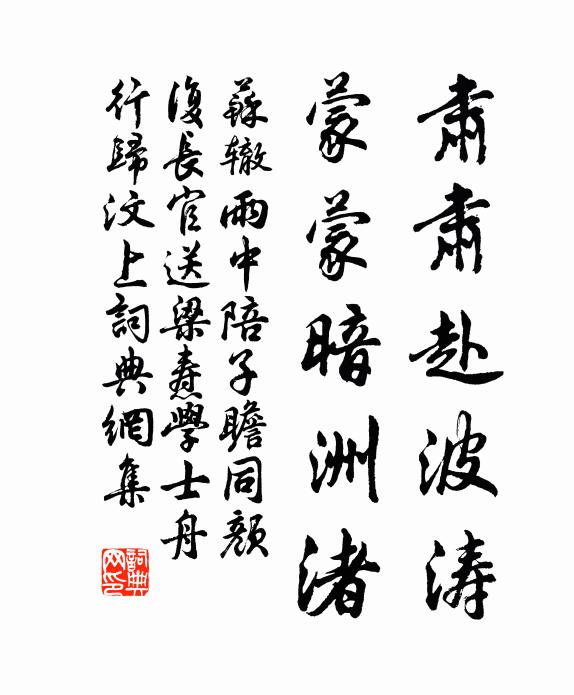 肅肅赴波涛
蒙蒙暗洲渚
蘇辙雨中陪子瞻同顏
復長官送梁燾學士舟
行歸汶上詞典網集
詞典
网印